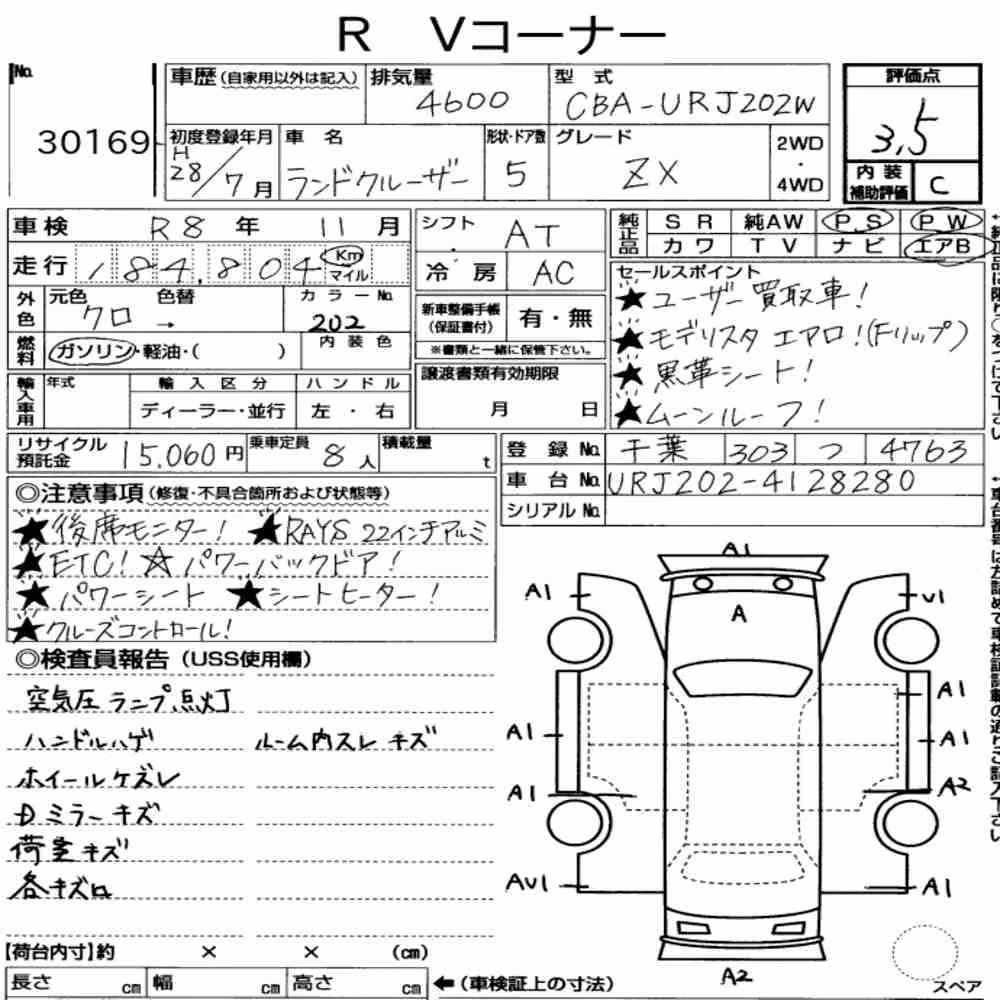 R Vコーナー
No.
30169
車歴(自家用以外は記入)
排気量
4600
型式
CBA-URJ202W
評価点
3.5
初度登録年月
H
28/7月
車名
ランドクルーザー
形状・ドア数
5
グレード
ZX
2WD
・
4WD
内装
補助評価
C
車検 R8年 11月
走行 184,804 Km
マイル
シフト
AT
冷房 AC
純正品
SR 純AW P.S PW
カワ TV ナビ エアB
外色
元色 色替
クロ →
カラーNo.
202
内装色
燃料
ガソリン・軽油・( )
新車整備手帳
(保証書付)
有・無
※書類と一緒に保管下さい。
セールスポイント
★ユーザー買取車!
★モデリスタ エアロ!(Fリップ)
★黒革シート!
★ムーンルーフ!
輸入車用
年式
輸入区分
ディーラー・並行
ハンドル
左・右
譲渡書類有効期限
月 日
リサイクル
預託金
15.060円
乗車定員
8人
積載量
t
登録No. 千葉 303 つ 4763
車台No. URJ202-4128280
シリアルNo.
◎注意事項(修復・不具合箇所および状態等)
★後席モニター! ★RAYS 22インチアルミ
★ETC! ☆パワーバックドア!
★パワーシート ★シートヒーター!
★クルーズコントロール!
◎検査員報告(USS使用欄)
空気圧ランプ点灯
ハンドルハゲ ルーム内スレ キズ
ホイールケズレ
Dミラーキズ
荷室キズ
各キズロ
A1
A1
U1
A
A1
A1
A1
A1
A2
AU1
A1
A2
スペア
【荷台内寸】約 × × (cm)
長さ cm 幅 cm 高さ cm
←(車検証上の寸法)